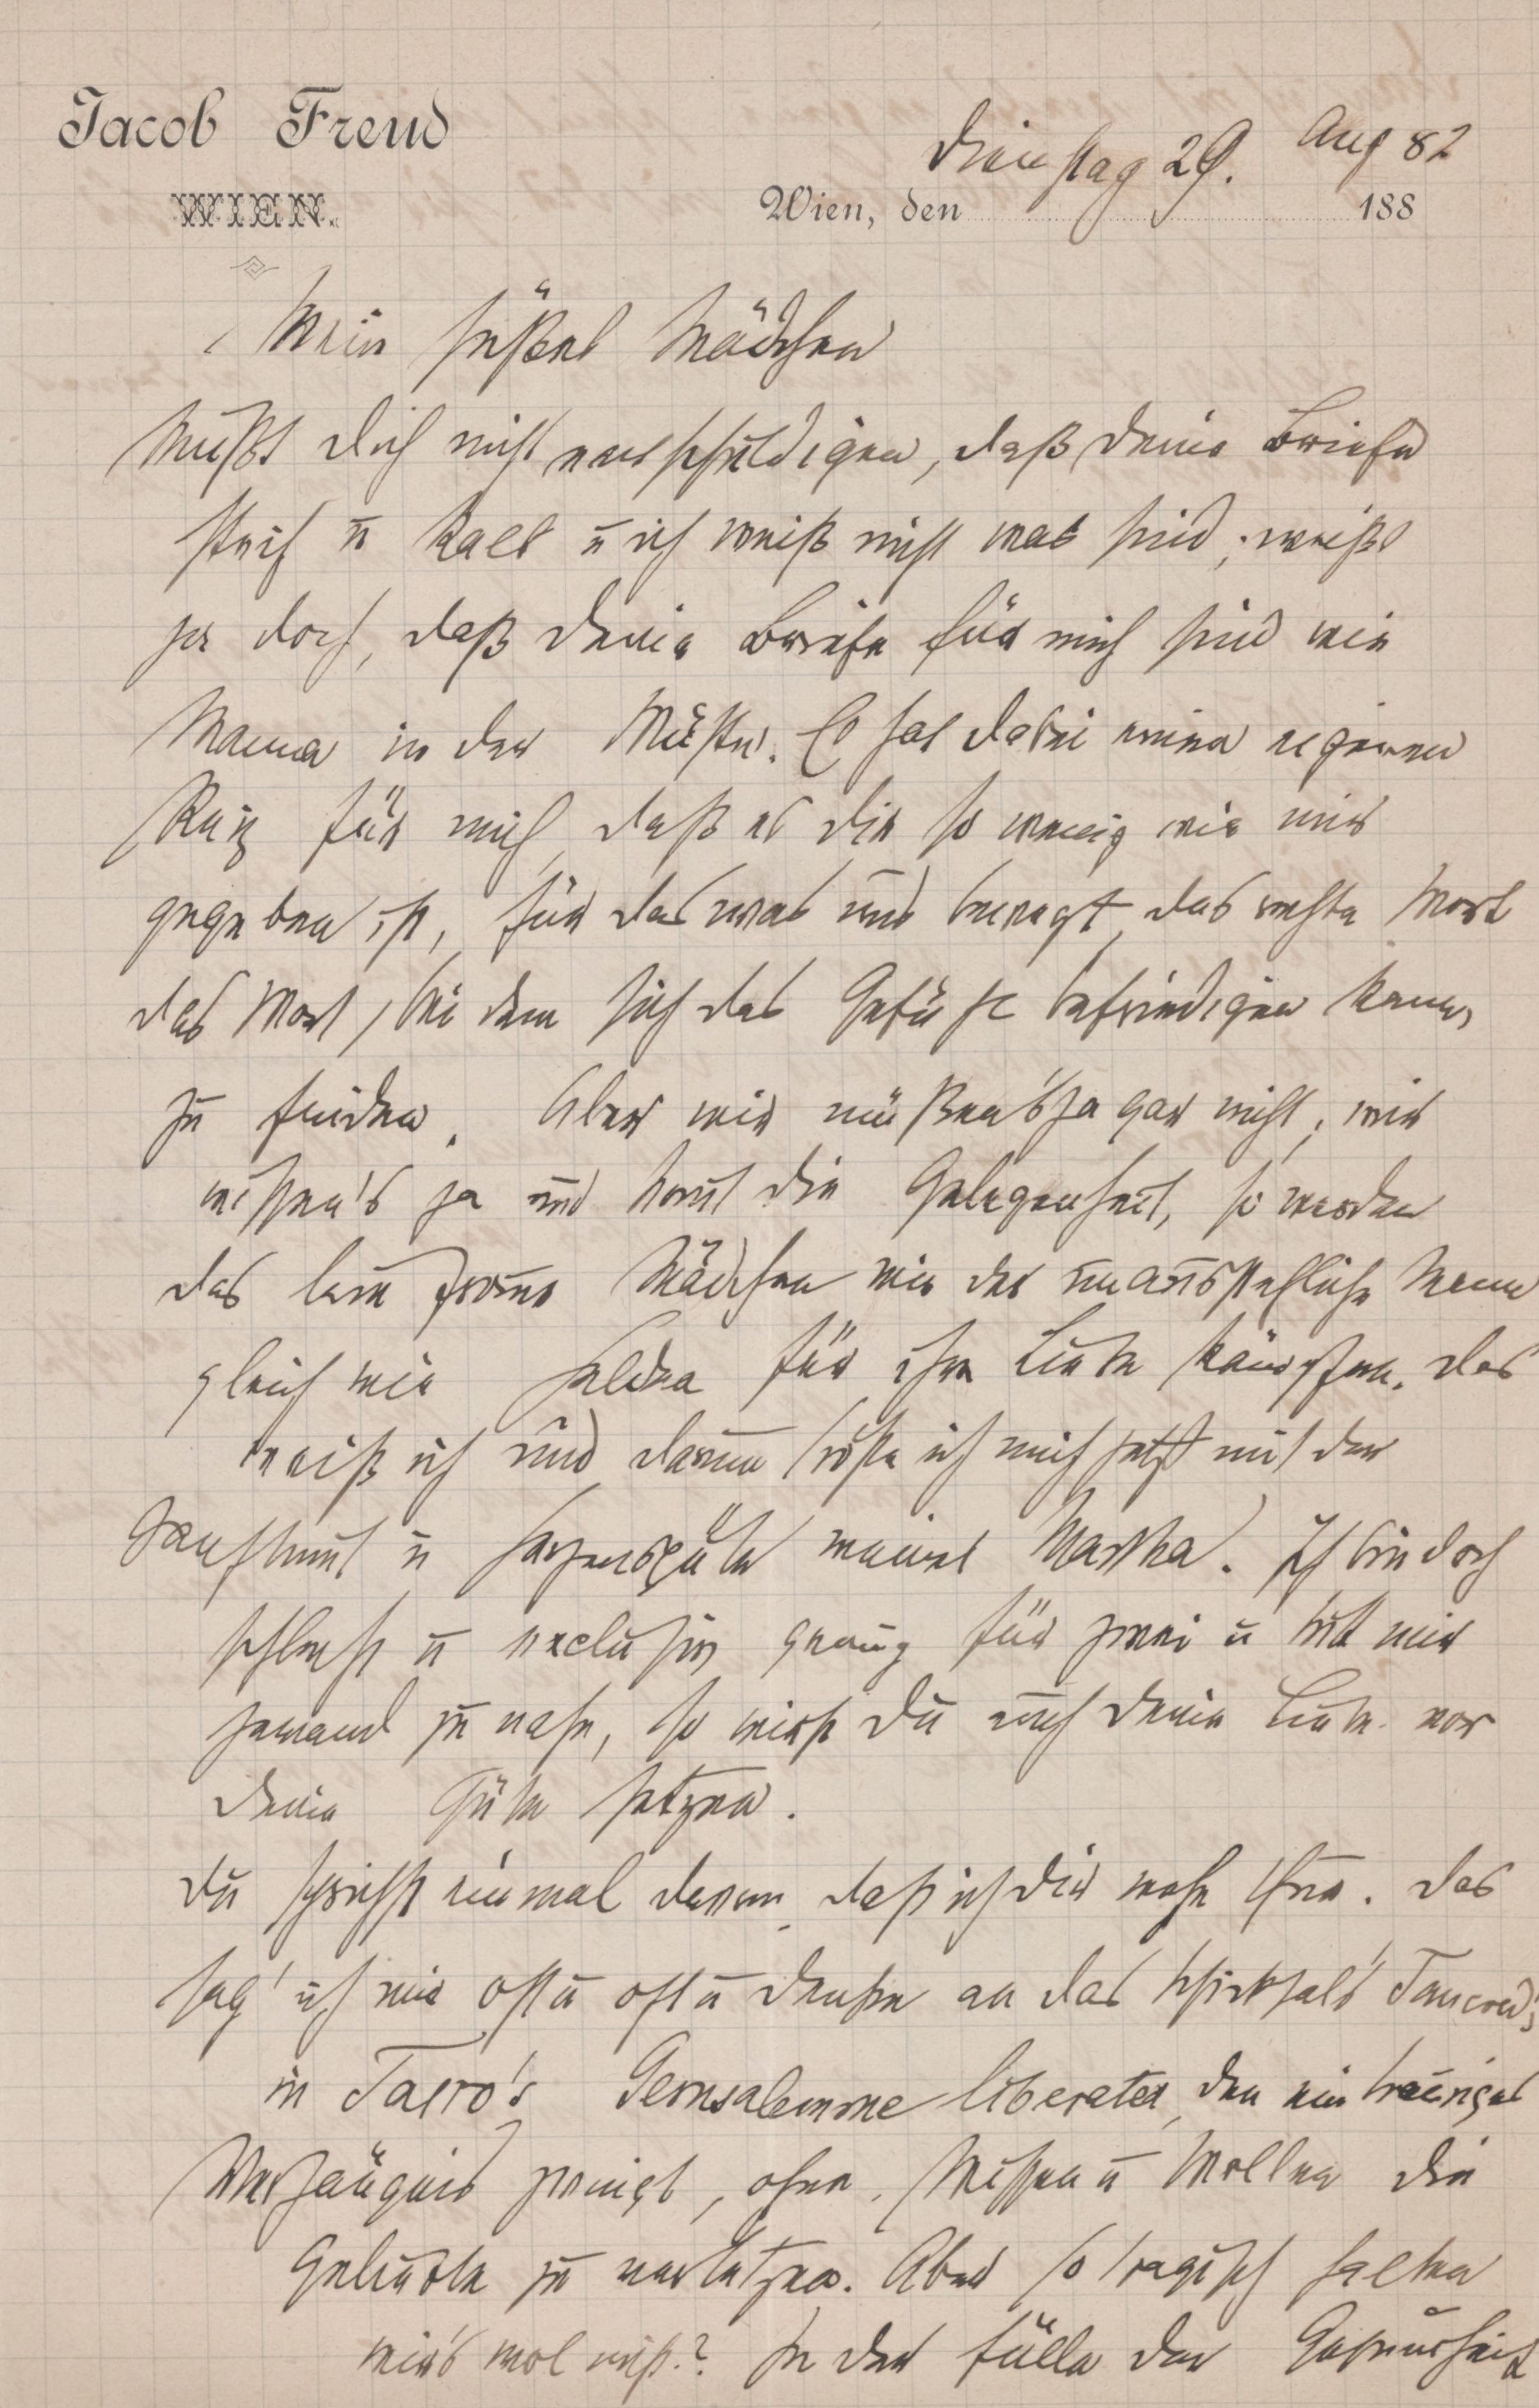 Jacob Freud
WIEN.
Dienstag 29. Aug 82
Wien, den 188
Mein süßes Mädchen
Mußt Dich nicht entschuldigen, daß Deine Briefe
steif u kalt u ich weiß nicht was sind; weißt
ja doch, daß Deine Briefe für mich sind wie
Manna in der Wüste. Es hat dabei einen eigenen
Reiz für mich, daß es Dir so wenig wie mir
gegeben ist, für das was uns bewegt, das rechte Wort
das Wort, bei dem sich das Gefühl befriedigen kann,
zu finden. Aber wir müßen's ja gar nicht; wir
wissen's ja und kommt die Gelegenheit, so werden
das Mädchen wie der unausstehliche Mann
gleich wie Helden für ihre Liebe kämpfen. Das
weiß ich und darum tröste ich mich jetzt mit der
Sanftmut u Herzensgüte meines Martha. Ich bin doch
schlecht u exclusiv genug für zwei u tritt mir
jemand zu nahe, so wirst Du auch Deine Liebe vor
Deine Güte setzen.
Du sprichst einmal davon, daß ich Dir wehe thue. Das
sag' ich mir oft u oft u denke an das Schicksal Tancred's
in Tasso's Gerusalemme liberata, den ein trauriges
Verhängnis zwingt, ohne Wissen u Wollen die
Geliebte zu verletzen. Aber so tragisch halten
wir's wol nicht? In der Fülle der